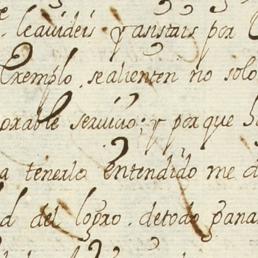 le ayudeis y asistais por
exemplo, se alienten no solo
orable seruicio; y porque h
a tenerlo entendido me d
d del logro. de todo gana